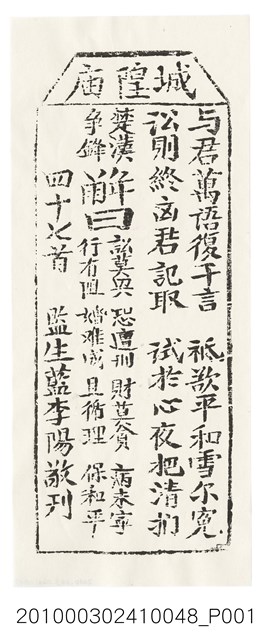 城隍庙
与君萬語復千言　祗欲平和雪尔寃
訟則終凶君記取　試於心夜把清捫
楚漢争鋒
解曰　訟莫興　恐遭刑　財莫貪　病未寧
行有阻　婚难成　且循理　保和平
四十七首　監生藍李陽敬刋
201000302410048_P001